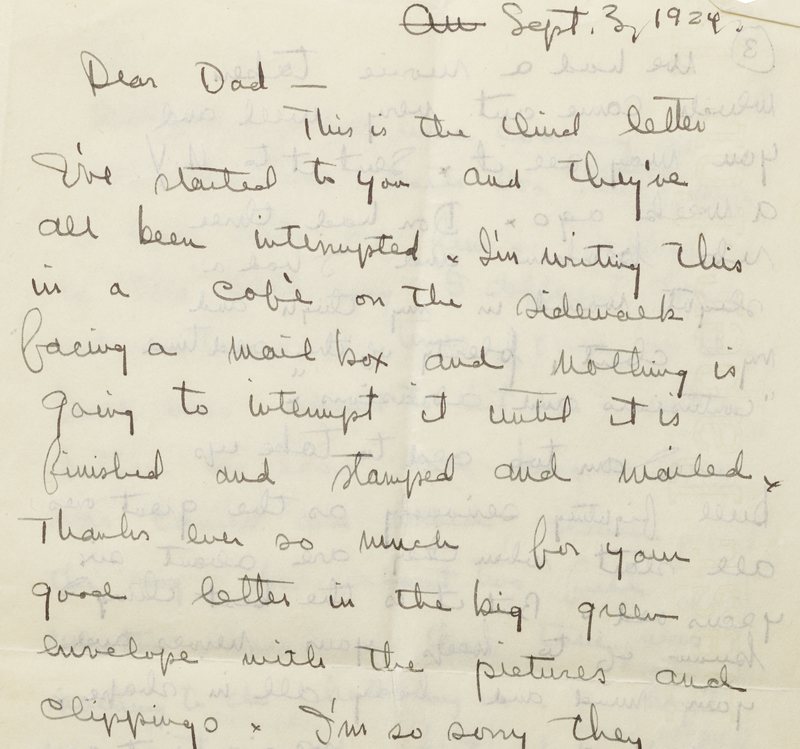 Sept. 3, 1924.
Dear Dad —
This is the third letter
I've started to you and they've
all been interrupted x I'm writing this
in a café on the sidewalk
facing a mail box and nothing is
going to interrupt it until it is
finished and stamped and mailed x
Thanks ever so much for your
good letter in the big green
envelope with the pictures and
clippings x I'm so sorry they